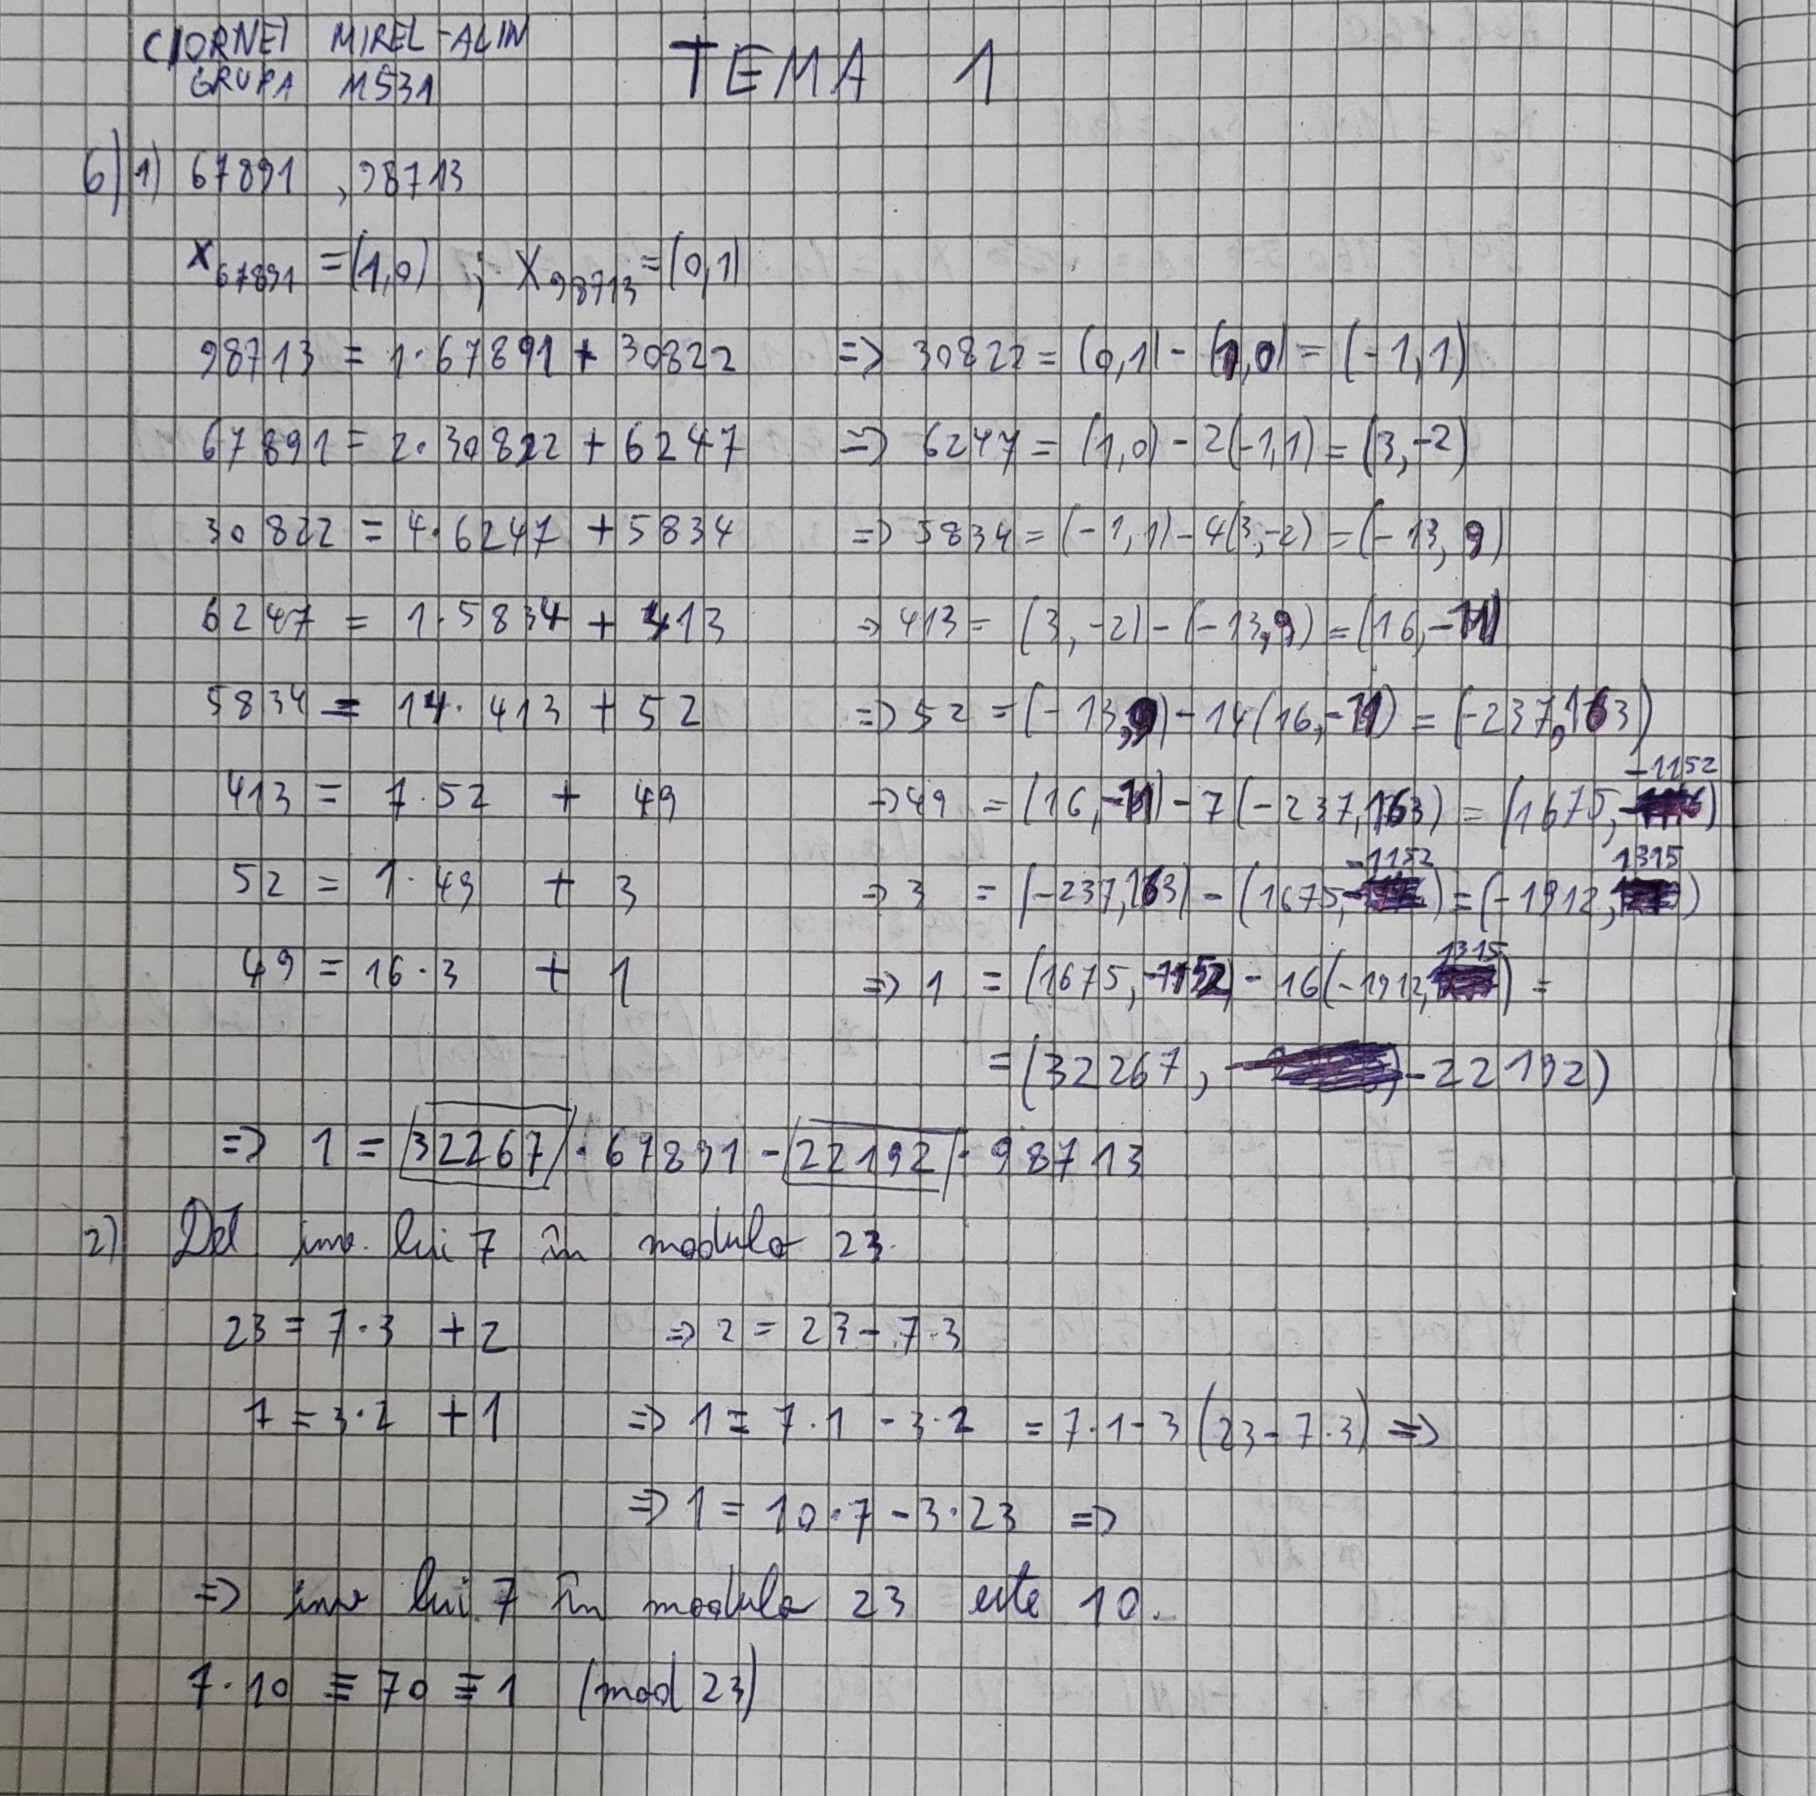 CIORNEI MIREL-ALIN
GRUPA M531
TEMA 1
6) 1) 67891 , 98713
X67891 = (1,0) ; X98713 = (0,1)
98713 = 1·67891 + 30822 => 30822 = (0,1) - (1,0) = (-1,1)
67891 = 2·30822 + 6247 => 6247 = (1,0) - 2(-1,1) = (3,-2)
30822 = 4·6247 + 5834 => 5834 = (-1,1) - 4(3,-2) = (-13,9)
6247 = 1·5834 + 413 => 413 = (3,-2) - (-13,9) = (16,-11)
5834 = 14·413 + 52 => 52 = (-13,9) - 14(16,-11) = (-237,163)
413 = 7·52 + 49 => 49 = (16,-11) - 7(-237,163) = (1675,-1152)
52 = 1·49 + 3 => 3 = (-237,163) - (1675,-1152) = (-1912,1315)
49 = 16·3 + 1 => 1 = (1675,-1152) - 16(-1912,1315) =
= (32267, -22192)
=> 1 = 32267 · 67891 - 22192 · 98713
2) Det inv. lui 7 în modulo 23.
23 = 7·3 + 2 => 2 = 23 - 7·3
7 = 3·2 + 1 => 1 = 7·1 - 3·2 = 7·1 - 3(23 - 7·3) =>
=> 1 = 10·7 - 3·23 =>
=> inv lui 7 în modulo 23 este 10.
7·10 ≡ 70 ≡ 1 (mod 23)